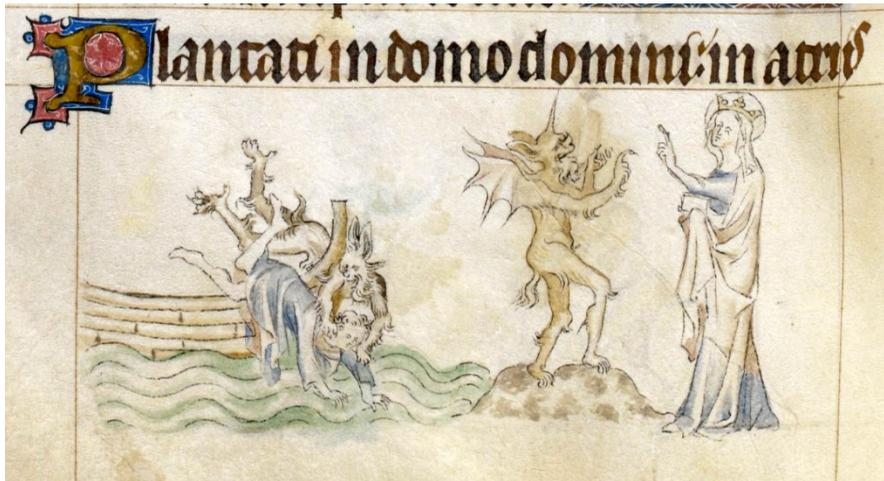 Plantati in domo domini: in atriis